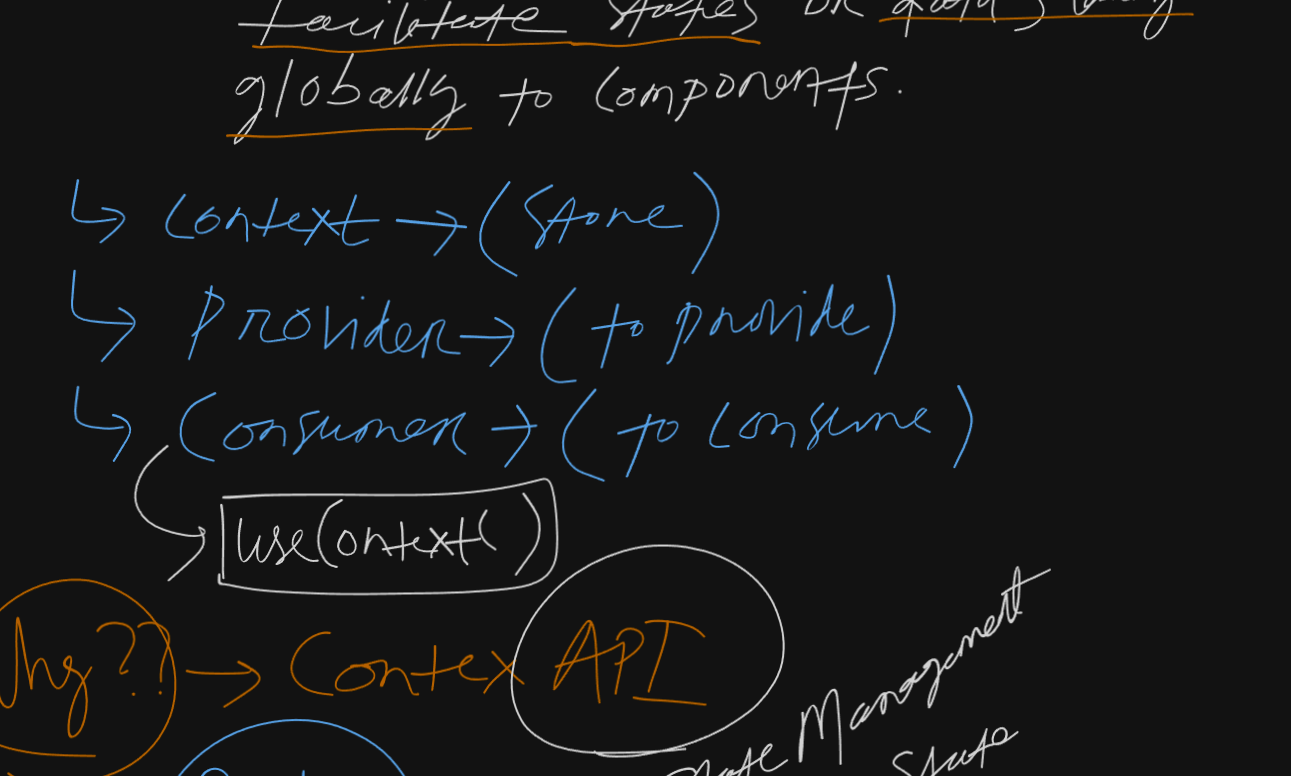 facilitate states OR
globally to components.
↳ Context → (Store)
↳ Provider → (to provide)
↳ Consumer → (to consume)
useContext()
Why?? → Contex API
Management
State